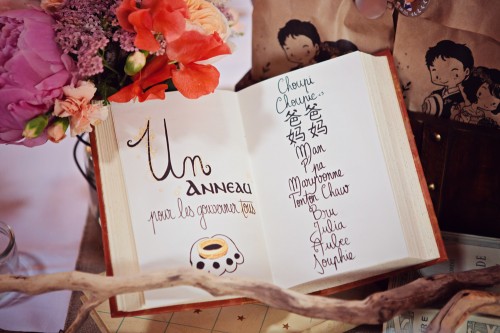 Un
ANNEAU
pour les gouverner tous
Choupi
Choupie
爸爸
妈妈
Man
Ppa
Marybonne
Tonton Chaw
Bru
Julia
Dulce
Souphie